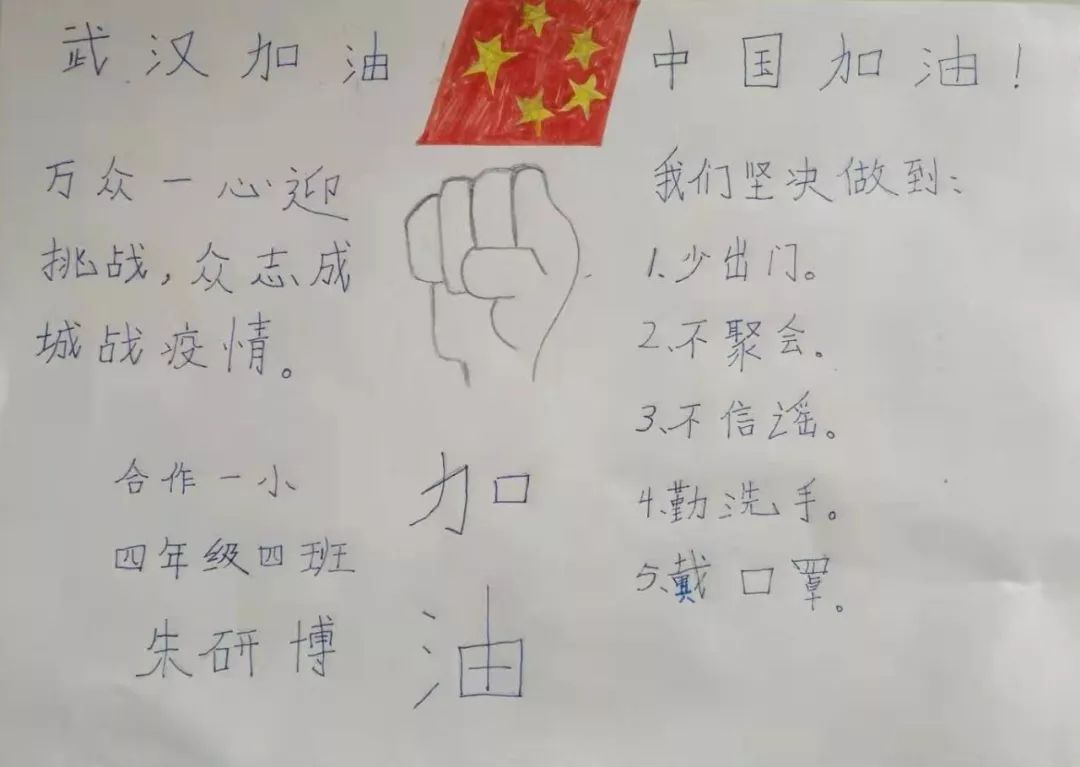 武汉加油
中国加油!
万众一心迎
挑战,众志成
城战疫情。
合作一小
四年级四班
朱研博
加
油
我们坚决做到:
1.少出门。
2.不聚会。
3.不信谣。
4.勤洗手。
5.戴口罩。